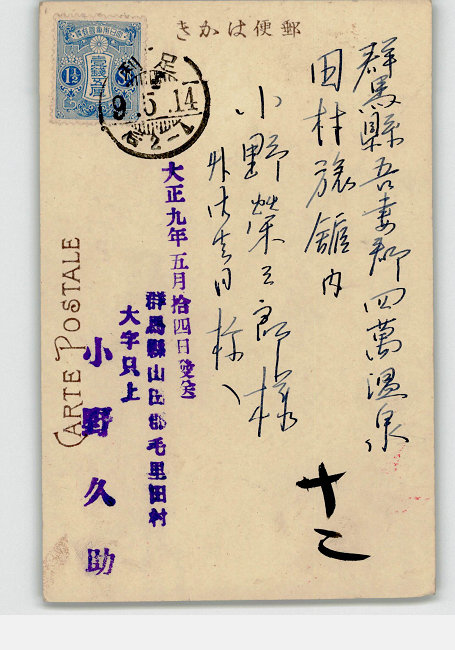 きかは便郵
群馬縣吾妻郡四萬温泉
田村旅舘内
小野榮三郎様
外御
大正九年五月拾四日發送
群馬縣山田郡毛里田村
大字只上
小野久助
十二
CARTE POSTALE
壹錢五厘
1½ Sn
9.5.14